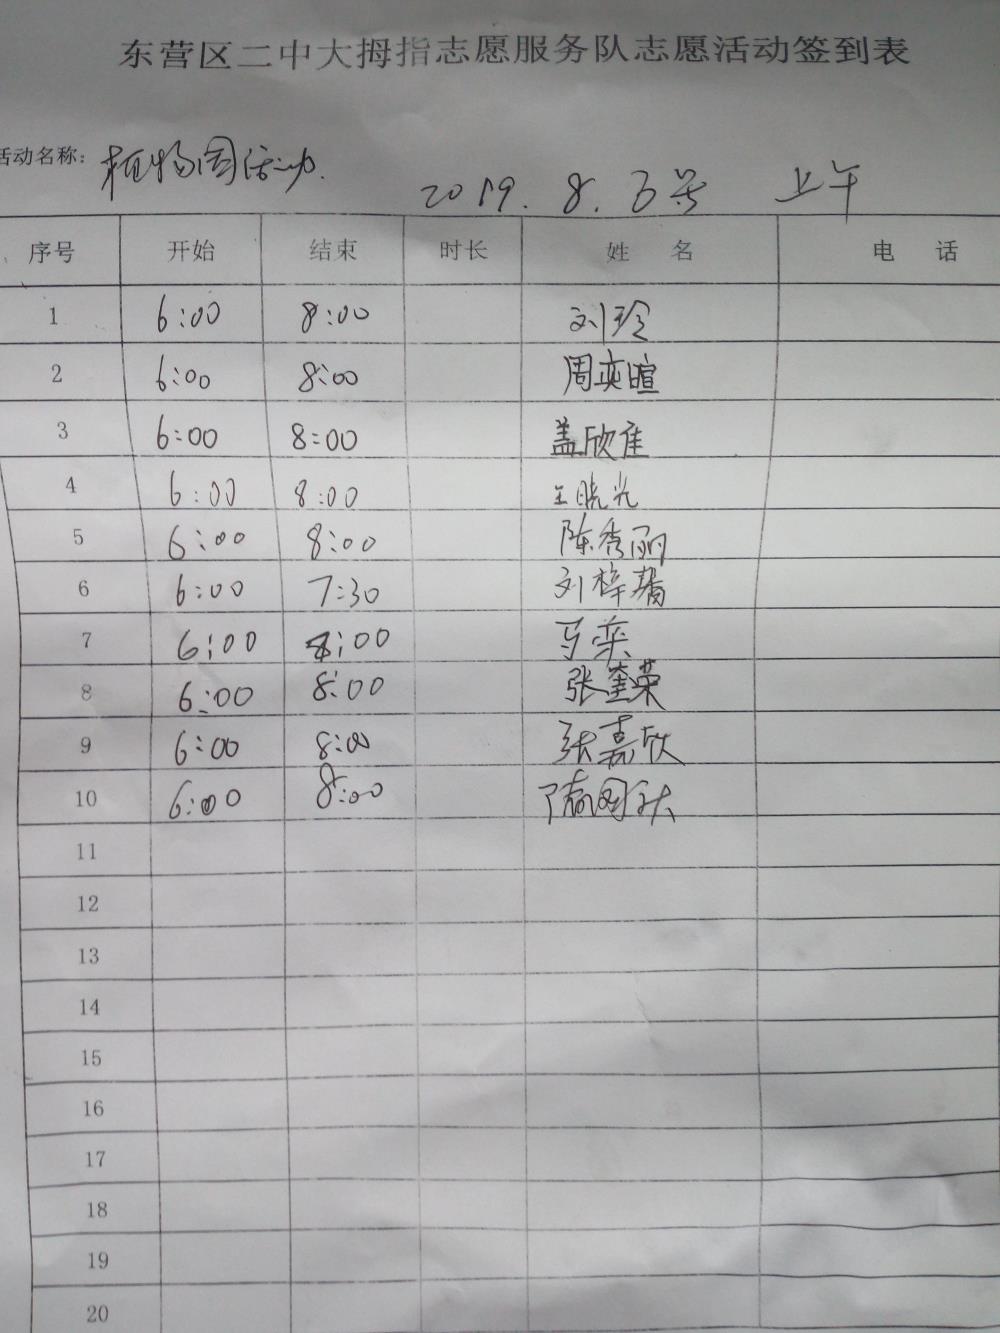 东营区二中大拇指志愿服务队志愿活动签到表
活动名称：植物园活动 2019.8. 号 上午
序号 开始 结束 时长 姓 名 电 话
1 6:00 8:00 刘玲
2 6:00 8:00 周奕暄
3 6:00 8:00 盖欣佳
4 6:00 8:00 王晓光
5 6:00 8:00 陈秀丽
6 6:00 7:30 刘梓
7 6:00 8:00 马奕
8 6:00 8:00 张奎荣
9 6:00 8:00 张嘉欣
10 6:00 8:00
11
12
13
14
15
16
17
18
19
20